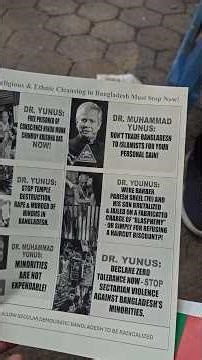 Religious & Ethnic Cleansing in Bangladesh Must Stop Now!
DR. YUNUS:
FREE PRISONER OF
CONSCIENCE HINDU MONK
CHINMOY KRISHNA DAS
NOW!
DR. MUHAMMAD
YUNUS:
DON'T TRADE BANGLADESH
TO ISLAMISTS FOR YOUR
PERSONAL GAIN!
DR. YUNUS:
STOP TEMPLE
DESTRUCTION,
RAPE & MURDER OF
HINDUS IN
BANGLADESH.
DR. YOUNUS:
WHY? BARBER
PARESH SHEEL (70) AND
HIS SON BRUTALIZED
& JAILED ON A FABRICATED
CHARGE OF "BLASPHEMY"
- OR SIMPLY FOR REFUSING
A HAIRCUT DISCOUNT?!
DR. MUHAMMAD
YUNUS:
MINORITIES
ARE NOT
EXPENDABLE!
DR. YUNUS:
DECLARE ZERO
TOLERANCE NOW - STOP
SECTARIAN VIOLENCE
AGAINST BANGLADESH'S
MINORITIES.
ALLOW SECULAR DEMOCRATIC BANGLADESH TO BE RADICALIZED